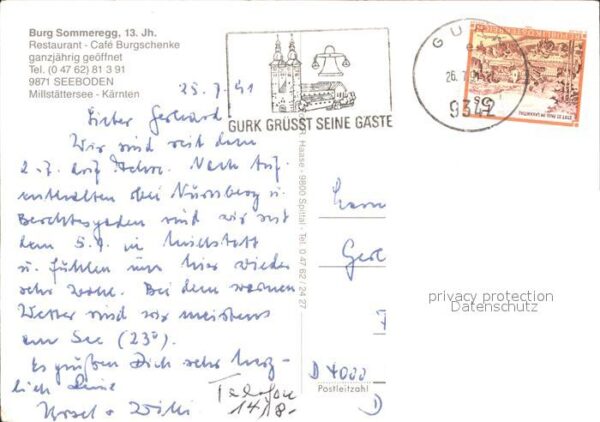 Burg Sommeregg, 13. Jh.
Restaurant - Café Burgschenke
ganzjährig geöffnet
Tel. (0 47 62) 81 3 91
9871 SEEBODEN
Millstättersee - Kärnten
GURK GRÜSST SEINE GÄSTE
GU
26. 7. 91
9342
25.7.91
Lieber Gerhard
Wir sind seit dem
2.7. auf Achse. Nach Auf-
enthalten bei Nürnberg u.
Berchtesgaden sind wir seit
dem 5.7. in Millstatt
u. fühlen uns hier wieder
sehr wohl. Bei dem warmen
Wetter sind wir meistens
am See (23°).
Es grüßen Dich sehr herz-
lich Deine
Ursel + Willi
Telefon
14/8-
R. Haase - 9800 Spittal - Tel. 0 47 62 / 24 27
Herrn
Ger
D 4000
Postleitzahl
D
privacy protection
Datenschutz